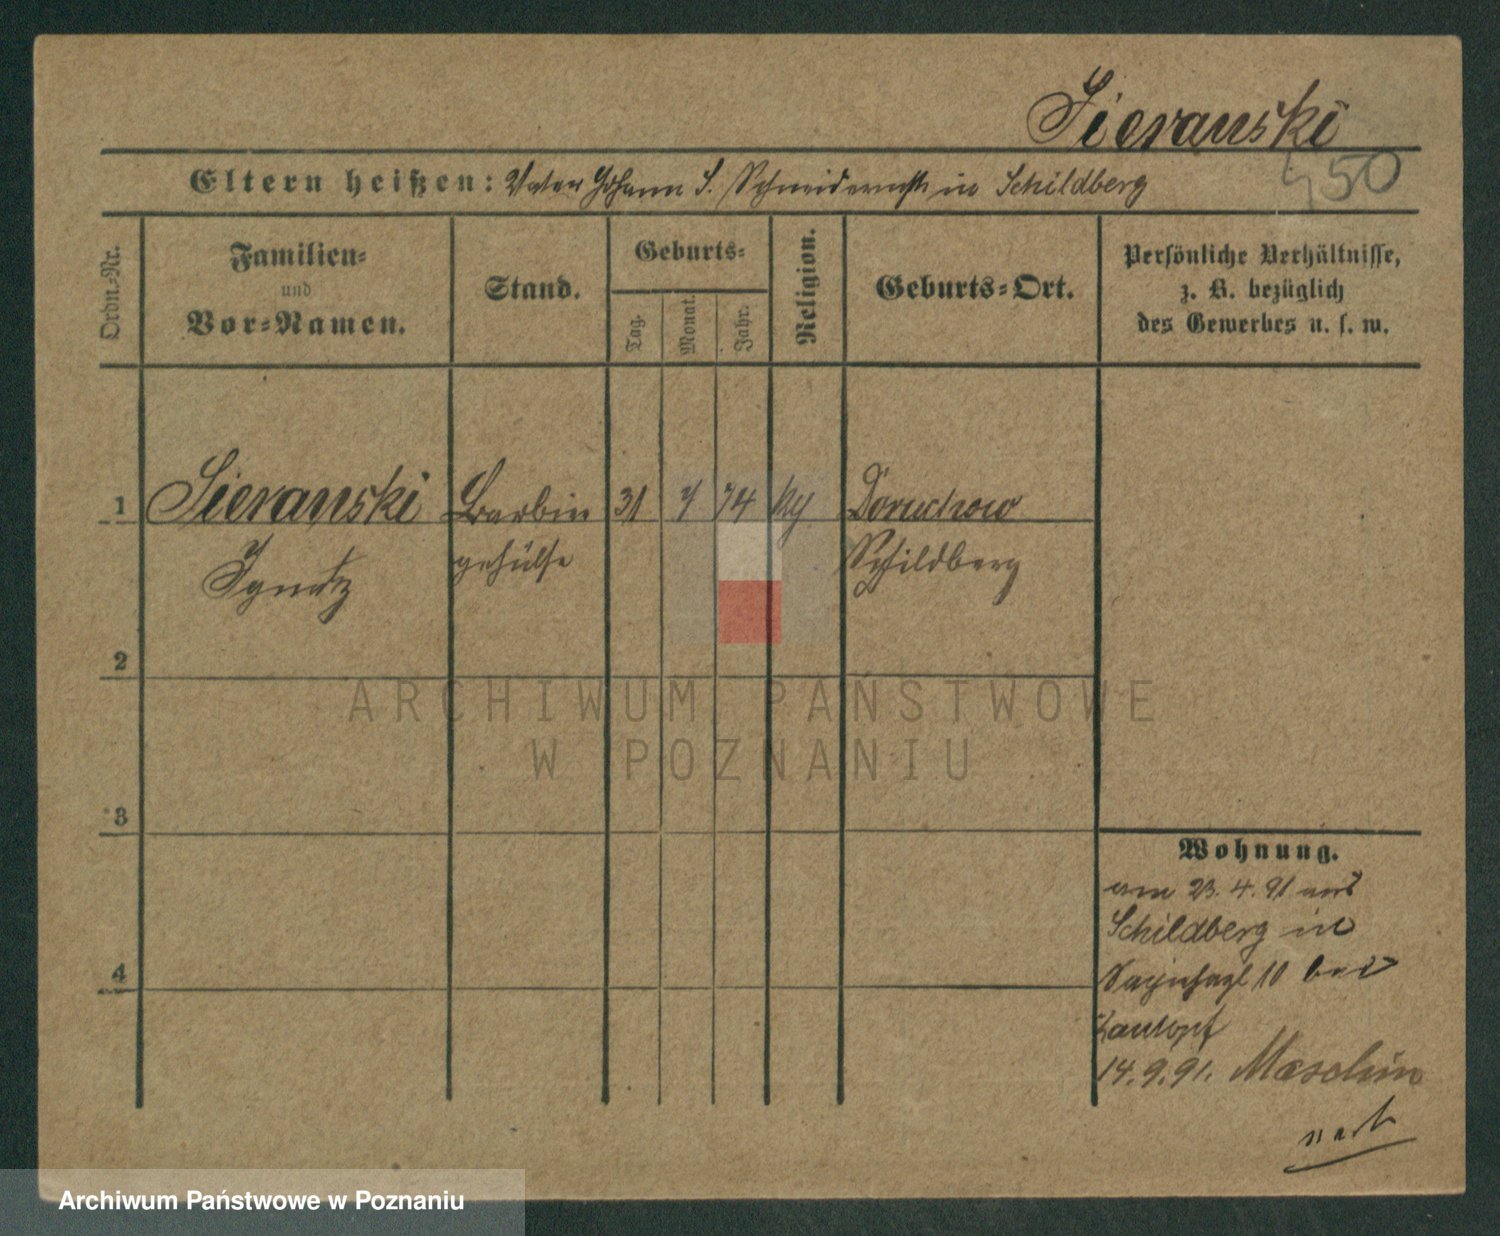 Sieranski
450
Eltern heißen: Vater Johann S. Schneidermstr in Schildberg
Ordn.-Nr.
Familien-
und
Vor-Namen.
Stand.
Geburts-
Tag.
Monat.
Jahr.
Religion.
Geburts-Ort.
Persönliche Verhältnisse,
z. B. bezüglich
des Gewerbes u. s. w.
1 Sieranski Barbier 31 7 74 kath Doruchow
Ignatz gehülfe Schildberg
2
3
4
Wohnung.
am 23. 4. 91 aus
Schildberg in
10 bei
14. 9. 91. Maschin
ARCHIWUM PAŃSTWOWE
W POZNANIU
Archiwum Państwowe w Poznaniu